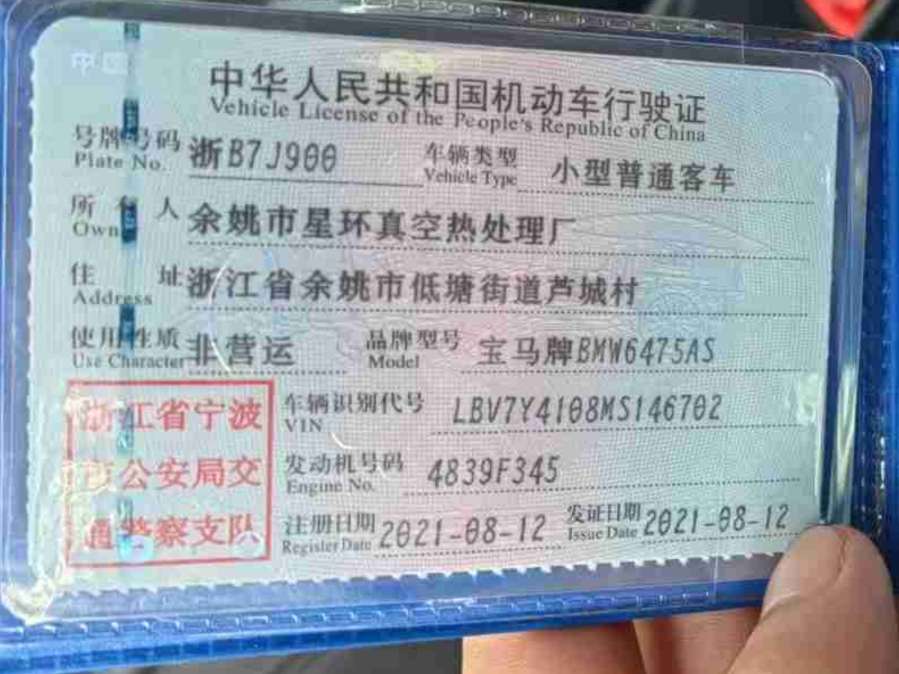 中华人民共和国机动车行驶证
Vehicle License of the People's Republic of China
号牌号码 浙B7J900 车辆类型 小型普通客车
Plate No. Vehicle Type
所有人 余姚市星环真空热处理厂
Own
住址 浙江省余姚市低塘街道芦城村
Address
使用性质 非营运 品牌型号 宝马牌BMW6475AS
Use Character Model
浙江省宁波 车辆识别代号 LBV7Y4108MS146702
VIN
市公安局交 发动机号码 4839F345
Engine No.
通警察支队 注册日期 2021-08-12 发证日期 2021-08-12
Register Date Issue Date